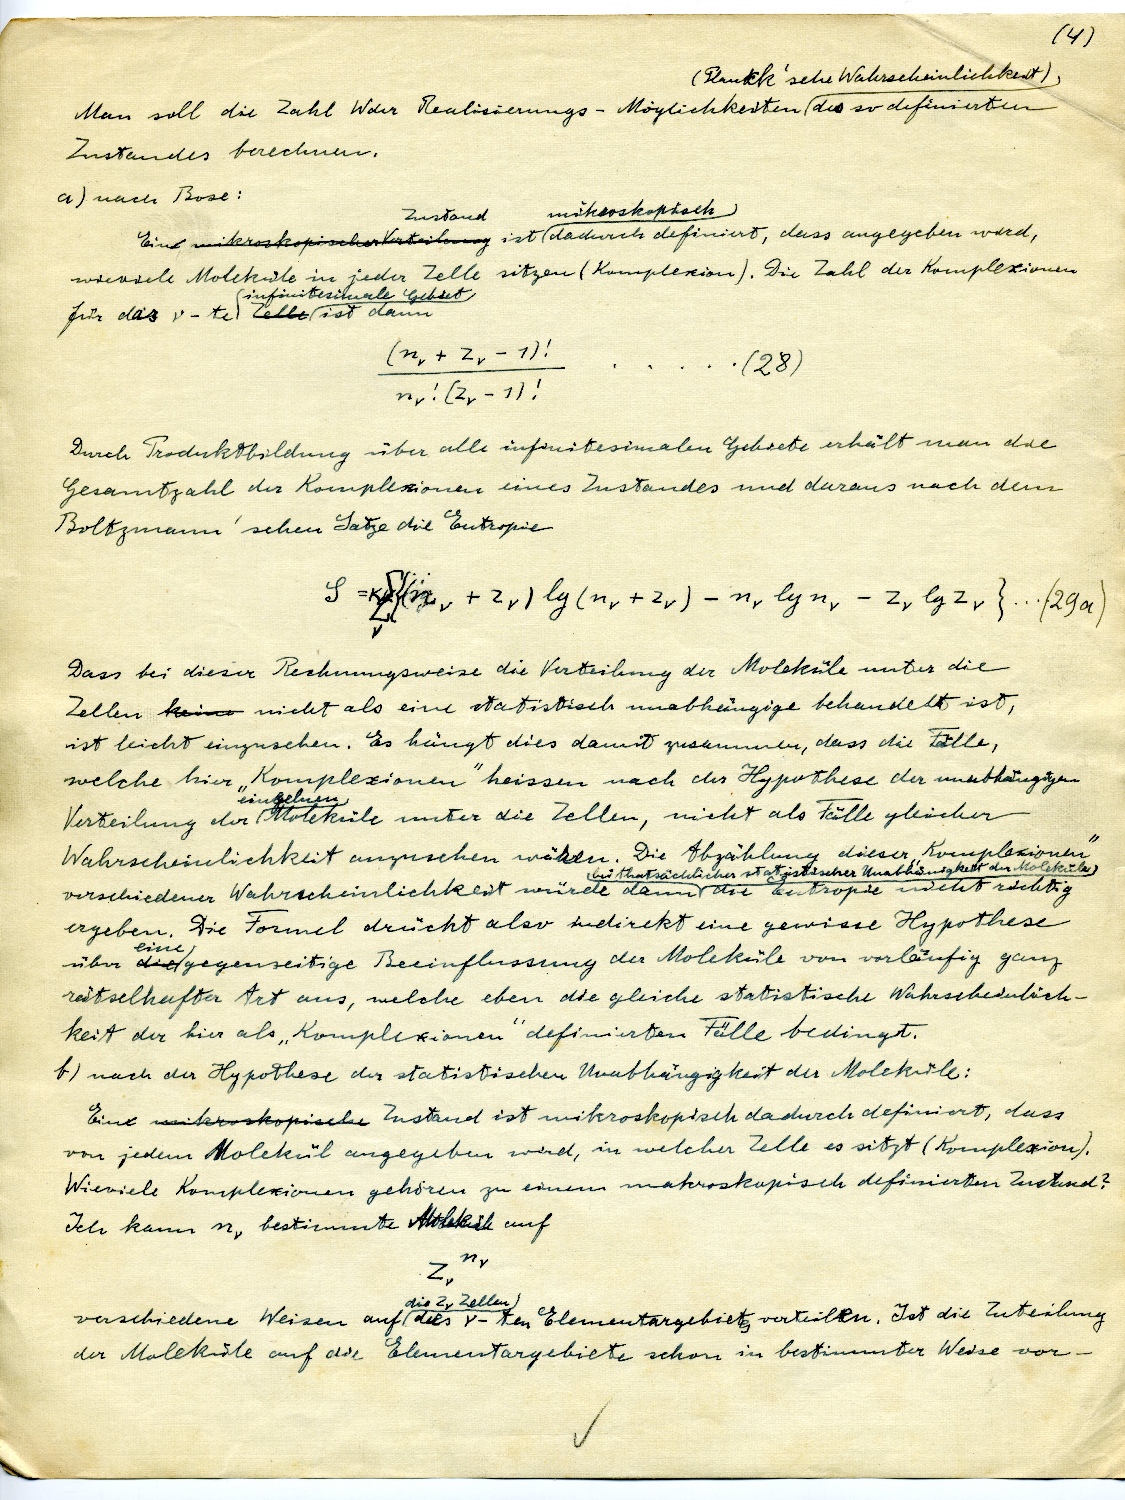 (4)
(Planck'sche Wahrscheinlichkeit)
Man soll die Zahl W der Realisierungs-Möglichkeiten des so definierten
Zustandes berechnen.
a) nach Bose:
Zustand mikroskopisch
Ein mikroskopischer Verteilung ist dadurch definiert, dass angegeben wird,
wieviele Moleküle in jeder Zelle sitzen (Komplexion). Die Zahl der Komplexionen
infinitesimale Gebiet
für das ν-te Zelle ist dann
(n_ν + z_ν - 1)! / n_ν! (z_ν - 1)! . . . . . (28)
Durch Produktbildung über alle infinitesimalen Gebiete erhält man die
Gesamtzahl der Komplexionen eines Zustandes und daraus nach dem
Boltzmann'schen Satze die Entropie
S = κ Σ_ν {(n_ν + z_ν) lg (n_ν + z_ν) - n_ν lg n_ν - z_ν lg z_ν } ...(29a)
Dass bei dieser Rechnungsweise die Verteilung der Moleküle unter die
Zellen keine nicht als eine statistisch unabhängige behandelt ist,
ist leicht einzusehen. Es hängt dies damit zusammen, dass die Fälle,
welche hier „Komplexionen" heissen nach der Hypothese der unabhängigen
einzelnen
Verteilung der Moleküle unter die Zellen, nicht als Fälle gleicher
Wahrscheinlichkeit anzusehen wären. Die Abzählung dieser „Komplexionen"
bei thatsächlicher statistischer Unabhänigkeit der Moleküle
verschiedener Wahrscheinlichkeit würde dann die Entropie nicht richtig
ergeben. Die Formel drückt also indirekt eine gewisse Hypothese
eine
über die gegenseitige Beeinflussung der Moleküle von vorläufig ganz
rätselhafter Art aus, welche eben die gleiche statistische Wahrscheinlich-
keit der hier als „Komplexionen" definierten Fälle bedingt.
b) nach der Hypothese der statistischen Unabhängigkeit der Moleküle:
Ein mikroskopische Zustand ist mikroskopisch dadurch definiert, dass
von jedem Molekül angegeben wird, in welcher Zelle es sitzt (Komplexion).
Wieviele Komplexionen gehören zu einem makroskopisch definierten Zustand?
Ich kann n_ν bestimmte Moleküle auf
z_ν^n_ν
die z_ν Zellen
verschiedene Weisen auf des ν-ten Elementargebiets verteilen. Ist die Zuteilung
der Moleküle auf die Elementargebiete schon in bestimmter Weise vor-